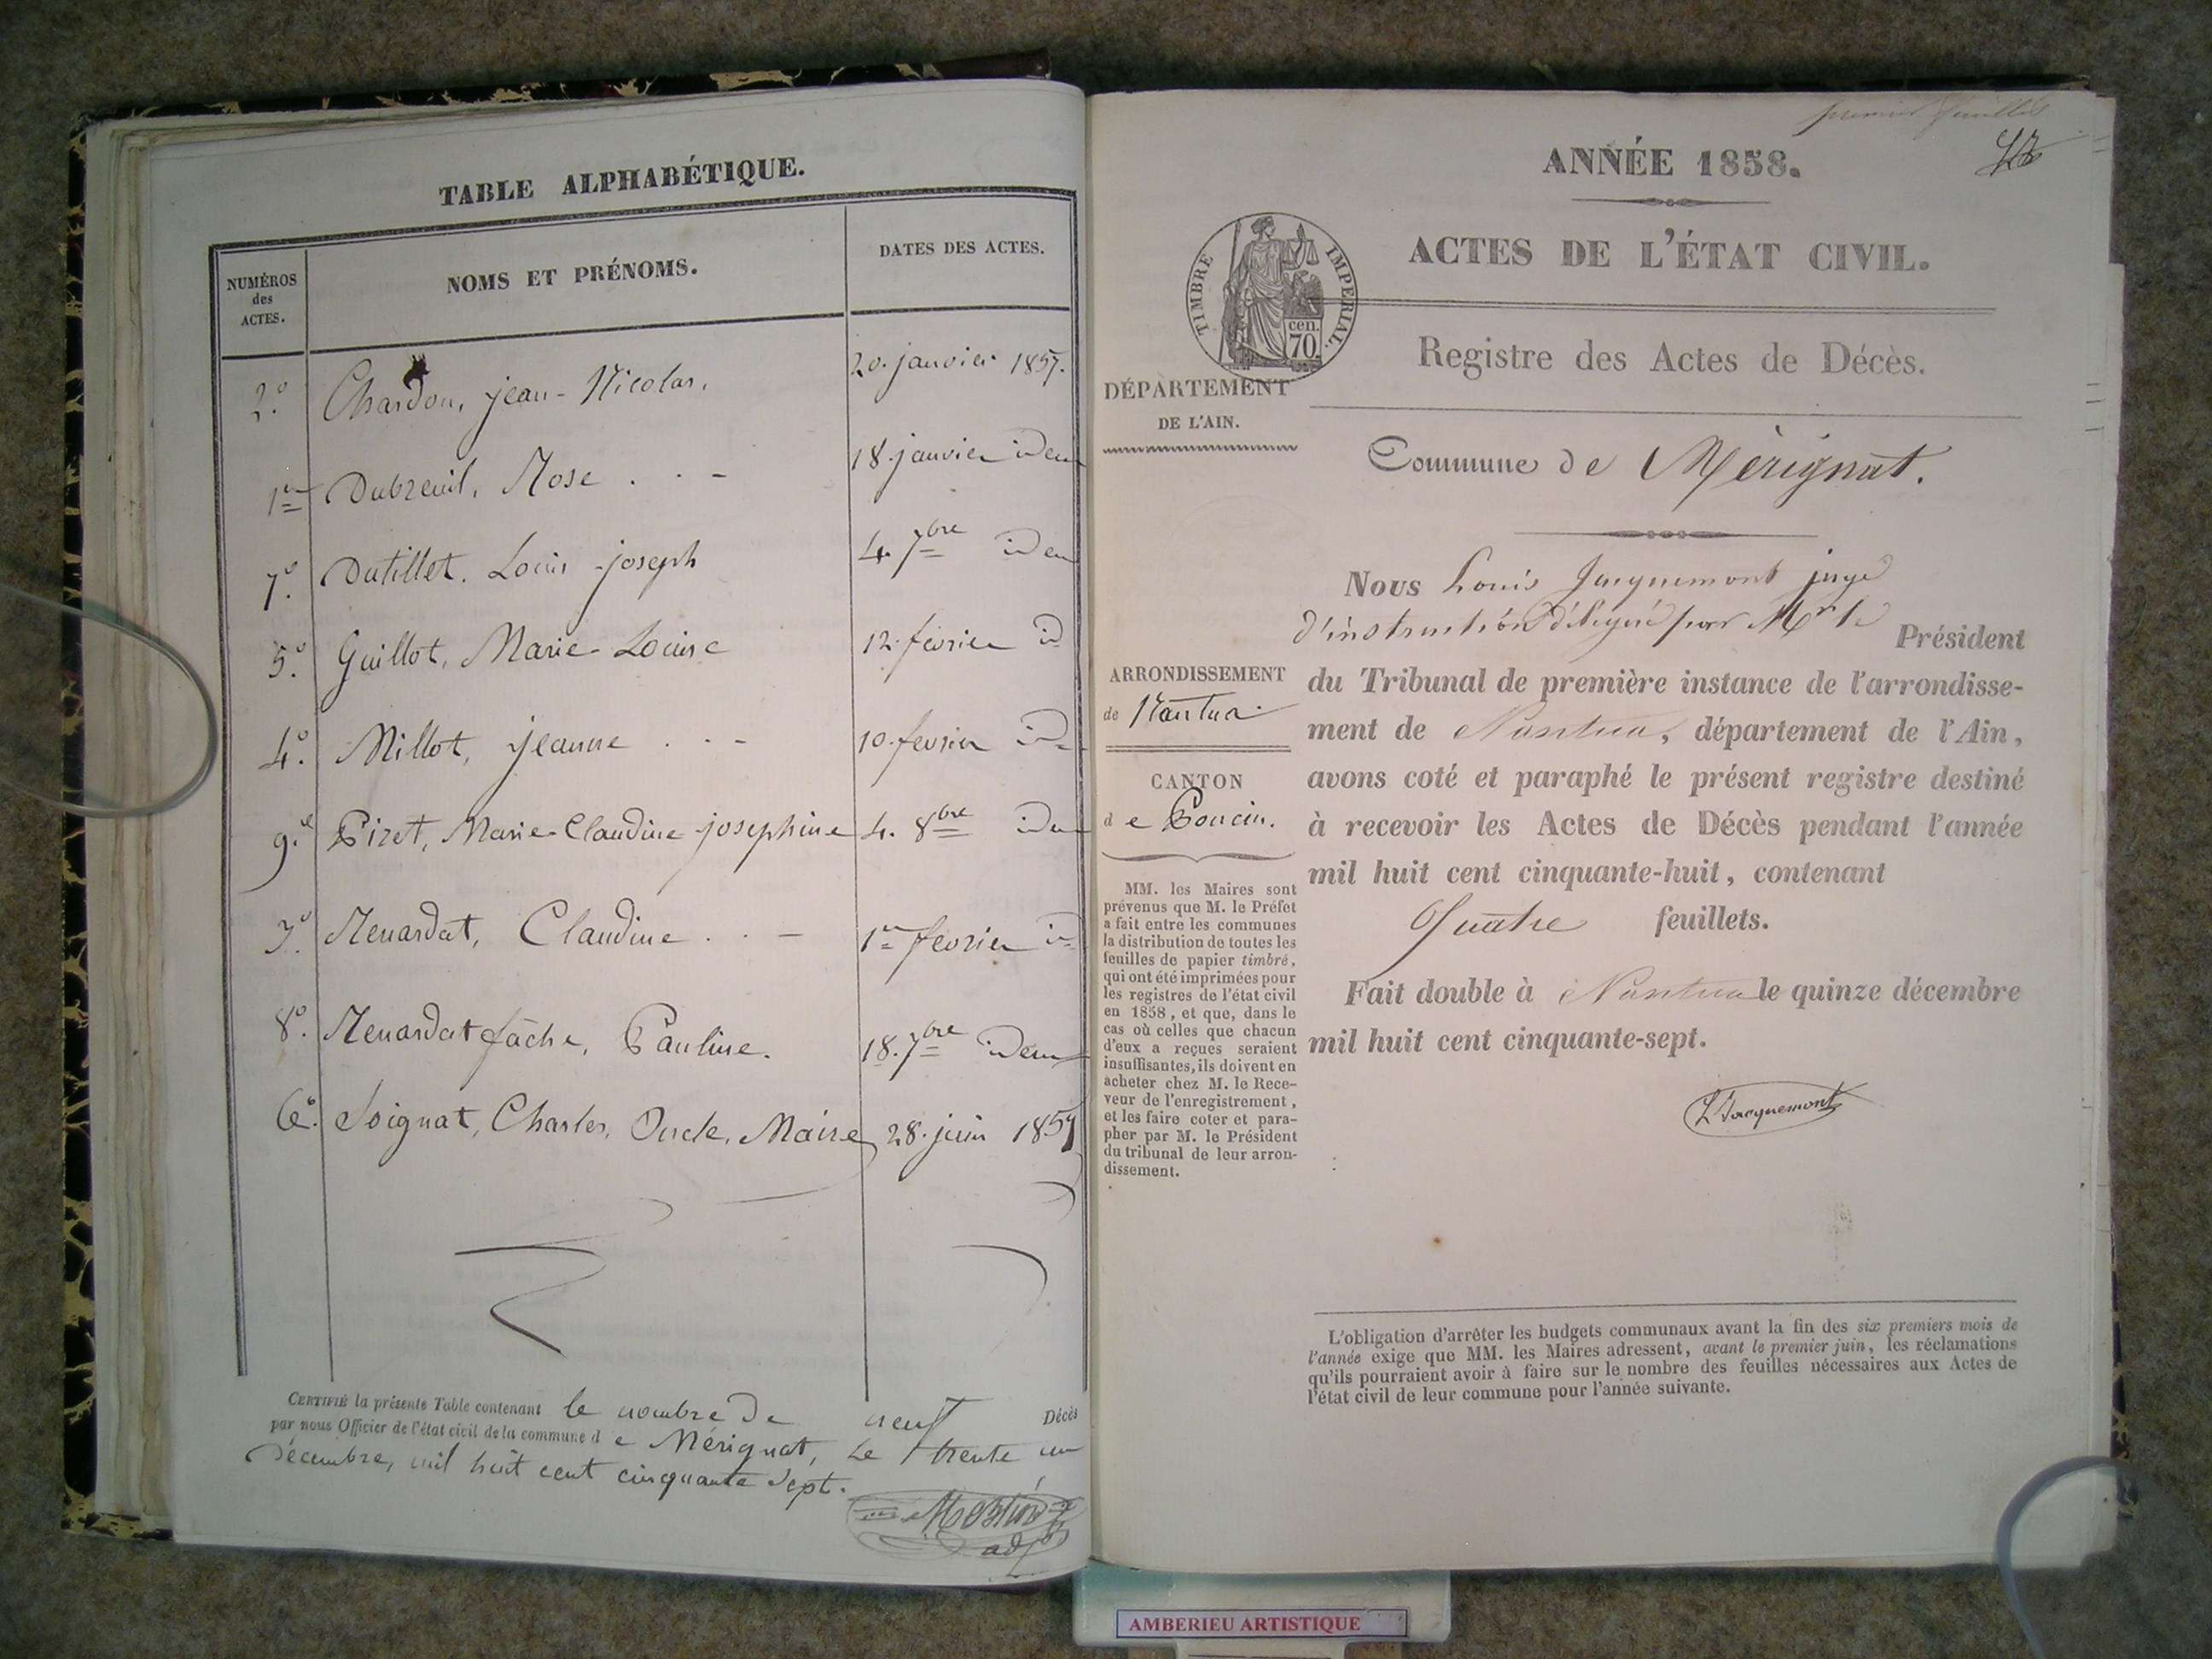 TABLE ALPHABÉTIQUE.
NUMÉROS
des
ACTES.
NOMS ET PRÉNOMS.
DATES DES ACTES.
2.° Chardon, jean-Nicolas. 20. janvier 1857.
1er Dubreuil, Rose . . - 18. janvier idem
7.° Dutillet. Louis-joseph 4. 7bre idem
5.° Guillot, Marie-Louise 12. février id
4.° Millot, jeanne . . - 10. fevrier id.
9.e Pizet, Marie-Claudine-josephine 4. 8bre idem
3.° Renardat, Claudine . . - 1er fevrier id
8.° Renardat fâche, Pauline. 18. 7bre idem
6.° Soignat, Charles, Oncle, Maire 28. juin 1857
CERTIFIÉ la présente Table contenant le nombre de neuf Décès
par nous Officier de l'état civil de la commune d e Mérignat, Le trente un
décembre, mil huit cent cinquante sept.
adj
premier feuillet
ANNÉE 1858.
ACTES DE L'ÉTAT CIVIL.
TIMBRE IMPÉRIAL.
cen.
70
Registre des Actes de Décès.
DÉPARTEMENT
DE L'AIN.
Commune de Mérignat.
Nous Louis Jacquemont juge
d'instruction délégué par Mr le Président
du Tribunal de première instance de l'arrondisse-
ment de Nantua, département de l'Ain,
avons coté et paraphé le présent registre destiné
à recevoir les Actes de Décès pendant l'année
mil huit cent cinquante-huit, contenant
Quatre feuillets.
Fait double à Nantua le quinze décembre
mil huit cent cinquante-sept.
L Jacquemont
ARRONDISSEMENT
de Nantua.
CANTON
d e Poncin.
MM. les Maires sont
prévenus que M. le Préfet
a fait entre les communes
la distribution de toutes les
feuilles de papier timbré,
qui ont été imprimées pour
les registres de l'état civil
en 1858, et que, dans le
cas où celles que chacun
d'eux a reçues seraient
insuffisantes, ils doivent en
acheter chez M. le Rece-
veur de l'enregistrement,
et les faire coter et para-
pher par M. le Président
du tribunal de leur arron-
dissement.
L'obligation d'arrêter les budgets communaux avant la fin des six premiers mois de
l'année exige que MM. les Maires adressent, avant le premier juin, les réclamations
qu'ils pourraient avoir à faire sur le nombre des feuilles nécessaires aux Actes de
l'état civil de leur commune pour l'année suivante.
AMBERIEU ARTISTIQUE